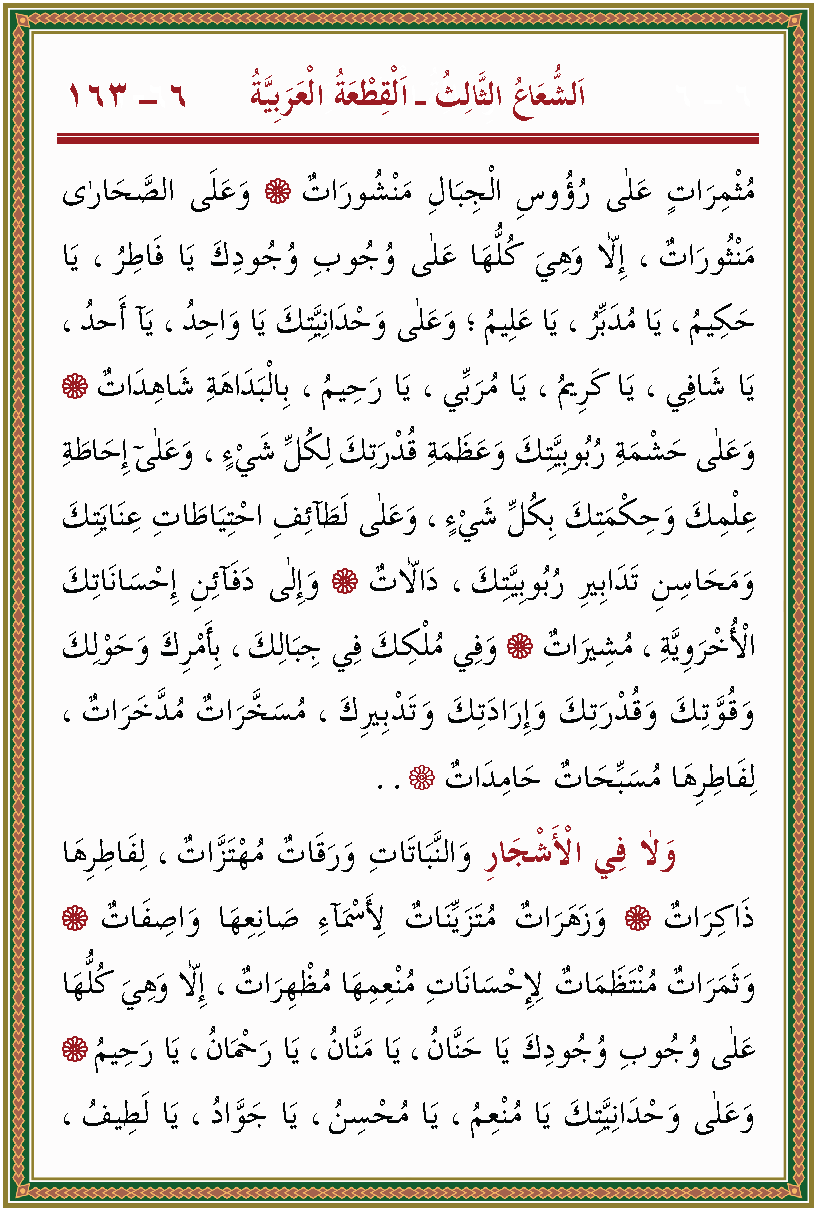 اَلشُّعَاعُ الثَّالِثُ - اَلْقِطْعَةُ الْعَرَبِيَّةُ ٦ - ١٦٣
مُثْمِرَاتٍ عَلٰى رُؤُسِ الْجِبَالِ مَنْشُورَاتٌ ❁ وَعَلَى الصَّحَارٰى
مَنْثُورَاتٌ ، إِلّاَ وَهِيَ كُلُّهَا عَلٰى وُجُوبِ وُجُودِكَ يَا فَاطِرُ ، يَا
حَكِيمُ ، يَا مُدَبِّرُ ، يَا عَلِيمُ ؛ وَعَلٰى وَحْدَانِيَّتِكَ يَا وَاحِدُ ، يَآ أَحدُ ،
يَا شَافِي ، يَا كَرِيمُ ، يَا مُرَبِّي ، يَا رَحِيمُ ، بِالْبَدَاهَةِ شَاهِدَاتٌ ❁
وَعَلٰى حَشْمَةِ رُبُوبِيَّتِكَ وَعَظَمَةِ قُدْرَتِكَ لِكُلِّ شَيْءٍ ، وَعَلٰٓى إِحَاطَةِ
عِلْمِكَ وَحِكْمَتِكَ بِكُلِّ شَيْءٍ ، وَعَلٰى لَطَآئِفِ احْتِيَاطَاتِ عِنَايَتِكَ
وَمَحَاسِنِ تَدَابِيرِ رُبُوبِيَّتِكَ ، دَالّاَتٌ ❁ وَإِلٰى دَفَآئِنِ إِحْسَانَاتِكَ
الْأُخْرَوِيَّةِ ، مُشِيرَاتٌ ❁ وَفِي مُلْكِكَ فِي جِبَالِكَ ، بِأَمْرِكَ وَحَوْلِكَ
وَقُوَّتِكَ وَقُدْرَتِكَ وَإِرَادَتِكَ وَتَدْبِيرِكَ ، مُسَخَّرَاتٌ مُدَّخَرَاتٌ ،
لِفَاطِرِهَا مُسَبِّحَاتٌ حَامِدَاتٌ ❁ . .
وَلاٰ فِي الْأَشْجَارِ وَالنَّبَاتَاتِ وَرَقَاتٌ مُهْتَزَّاتٌ ، لِفَاطِرِهَا
ذَاكِرَاتٌ ❁ وَزَهَرَاتٌ مُتَزَيِّنَاتٌ لِأَسْمَآءِ صَانِعِهَا وَاصِفَاتٌ ❁
وَثَمَرَاتٌ مُنْتَظَمَاتٌ لِإِحْسَانَاتِ مُنْعِمِهَا مُظْهِرَاتٌ ، إِلّاَ وَهِيَ كُلُّهَا
عَلٰى وُجُوبِ وُجُودِكَ يَا حَنَّانُ ، يَا مَنَّانُ ، يَا رَحْمَانُ ، يَا رَحِيمُ ❁
وَعَلٰى وَحْدَانِيَّتِكَ يَا مُنْعِمُ ، يَا مُحْسِنُ ، يَا جَوَّادُ ، يَا لَطِيفُ ،